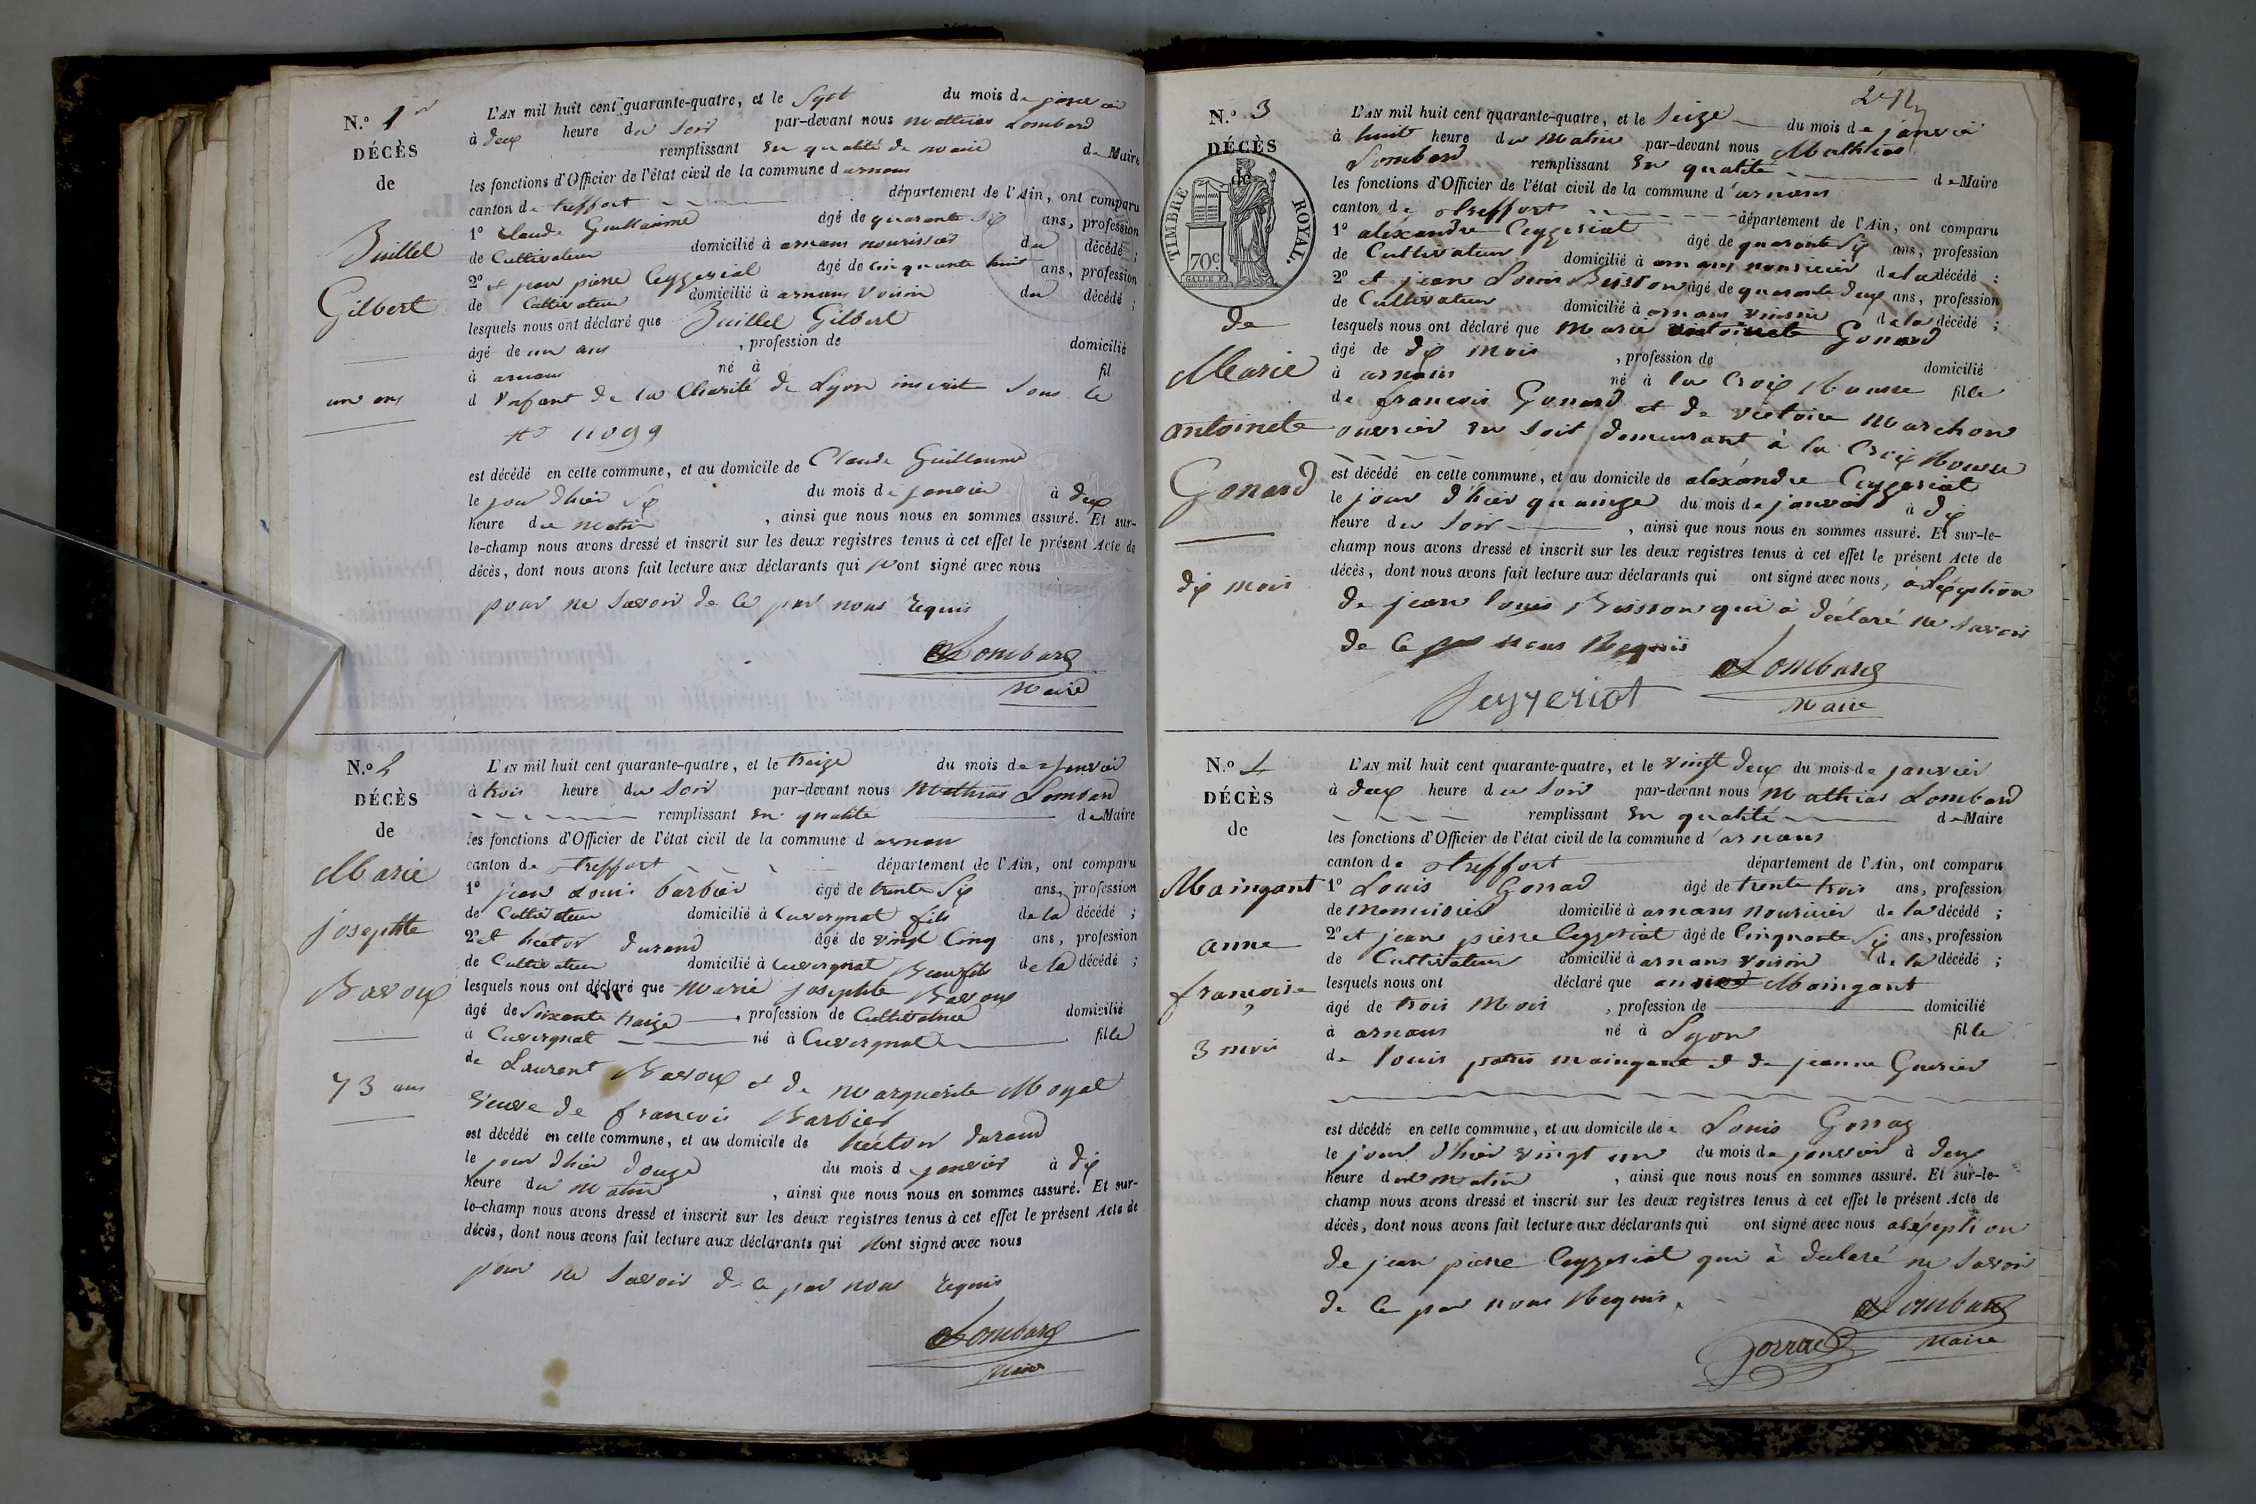 N.º 1er
DÉCÈS
de
Buillet
Gilbert
un ans
L'AN mil huit cent quarante-quatre, et le Sept du mois de janvier
à deux heure du Soir par-devant nous Mathias Lombard
remplissant en qualité de maire de Maire
les fonctions d'Officier de l'état civil de la commune d'arnans
canton de treffort département de l'Ain, ont comparu
1º Claude Guillaume âgé de quarante Six ans, profession
de Cultivateur domicilié à arnans nourissier du décédé ;
2º et jean pierre Ceyzeriat âgé de cinquante huit ans, profession
de Cultivateur domicilié à arnans Voisin du décédé ;
lesquels nous ont déclaré que Buillet Gilbert
âgé de un ans , profession de domicilié
à arnans né à fil
d Enfant de la Charité de Lyon inscrit Sous le
Nº 11099
est décédé en cette commune, et au domicile de Claude Guillaume
le jour d'hier Six du mois de janvier à deux
heure du matin , ainsi que nous nous en sommes assuré. Et sur-
le-champ nous avons dressé et inscrit sur les deux registres tenus à cet effet le présent Acte de
décès, dont nous avons fait lecture aux déclarants qui n'ont signé avec nous
pour ne Savoir de ce par nous Requis
Lombard
Maire
N.º 2
DÉCÈS
de
Marie
josephte
Bavoux
73 ans
L'AN mil huit cent quarante-quatre, et le treize du mois de janvier
à trois heure du Soir par-devant nous Mathias Lombard
remplissant en qualité de Maire
les fonctions d'Officier de l'état civil de la commune d arnans
canton de treffort département de l'Ain, ont comparu
1º jean Louis barbier âgé de trente Six ans, profession
de Cultivateur domicilié à Cuvergnat fils de la décédé ;
2º et hector durand âgé de vingt Cinq ans, profession
de Cultivateur domicilié à Cuvergnat Beaufils de la décédé ;
lesquels nous ont déclaré que Marie josephte Bavoux
âgé de Soixante treize , profession de Cultivatrice domicilié
à Cuvergnat né à Cuvergnat fille
de Laurent Bavoux et de Marguerite Moyat
Veuve de françois Barbier
est décédé en cette commune, et au domicile de héctor durand
le jour d'hier douze du mois de janvier à dix
heure du Matin , ainsi que nous nous en sommes assuré. Et sur-
le-champ nous avons dressé et inscrit sur les deux registres tenus à cet effet le présent Acte de
décès, dont nous avons fait lecture aux déclarants qui N'ont signé avec nous
pour ne Savoir de ce par nous requis
Lombard
Maire
N.º 3
DÉCÈS
TIMBRE ROYAL.
70c
de
Marie
antoinete
Gonard
dix mois
L'AN mil huit cent quarante-quatre, et le Seize du mois de janvier
à huit heure du Matin par-devant nous Mathias
Lombard remplissant en qualité de Maire
les fonctions d'Officier de l'état civil de la commune d'arnans
canton de treffort département de l'Ain, ont comparu
1º aléxandre Ceyzeriat âgé de quarante Six ans, profession
de Cultivateur domicilié à arnans nouricier de la décédé :
2º et jean Louis Buisson âgé de quarante deux ans, profession
de Cultivateur domicilié à arnans voisin de la décédé ;
lesquels nous ont déclaré que Marie antoinete Gonard
âgé de dix mois , profession de domicilié
à arnans né à la Croix Rousse fille
de françois Gonard et de victoire Marchon
ouvrier en Soit demeurant à la Croix Rousse
est décédé en cette commune, et au domicile de aléxandre Ceyzeriat
le jour d'hier quainze du mois de janvier à dix
heure du Soir , ainsi que nous nous en sommes assuré. Et sur-le-
champ nous avons dressé et inscrit sur les deux registres tenus à cet effet le présent Acte de
décès, dont nous avons fait lecture aux déclarants qui ont signé avec nous, à l'éxéption
de jean louis Buisson qui à déclaré ne Savoir
de Ce par nous Requis
Lombard
Maire
Ceyzeriat
N.º 4
DÉCÈS
de
Maingant
anne
françoise
3 mois
L'AN mil huit cent quarante-quatre, et le vingt deux du mois de janvier
à deux heure du Soir par-devant nous Mathias Lombard
remplissant en qualité de Maire
les fonctions d'Officier de l'état civil de la commune d'arnans
canton de treffort département de l'Ain, ont comparu
1º Louis Gorraz âgé de trente trois ans, profession
de Menuisier domicilié à arnans Nouricier de la décédé ;
2º et jean pierre Ceyzeriat âgé de Cinquante Six ans, profession
de Cultivateur domicilié à arnans voisin de la décédé ;
lesquels nous ont déclaré que Maingant
âgé de trois Mois , profession de domicilié
à arnans né à Lyon fille
de louis maingant & de jeanne
est décédé en cette commune, et au domicile de Louis Gorraz
le jour d'hier vingt un du mois de janvier à deux
heure du Matin , ainsi que nous nous en sommes assuré. Et sur-le-
champ nous avons dressé et inscrit sur les deux registres tenus à cet effet le présent Acte de
décès, dont nous avons fait lecture aux déclarants qui ont signé avec nous à l'éxéption
de jean pierre Ceyzeriat qui à déclaré ne Savoir
de Ce par nous Requis.
Lombard
Maire
Gorraz